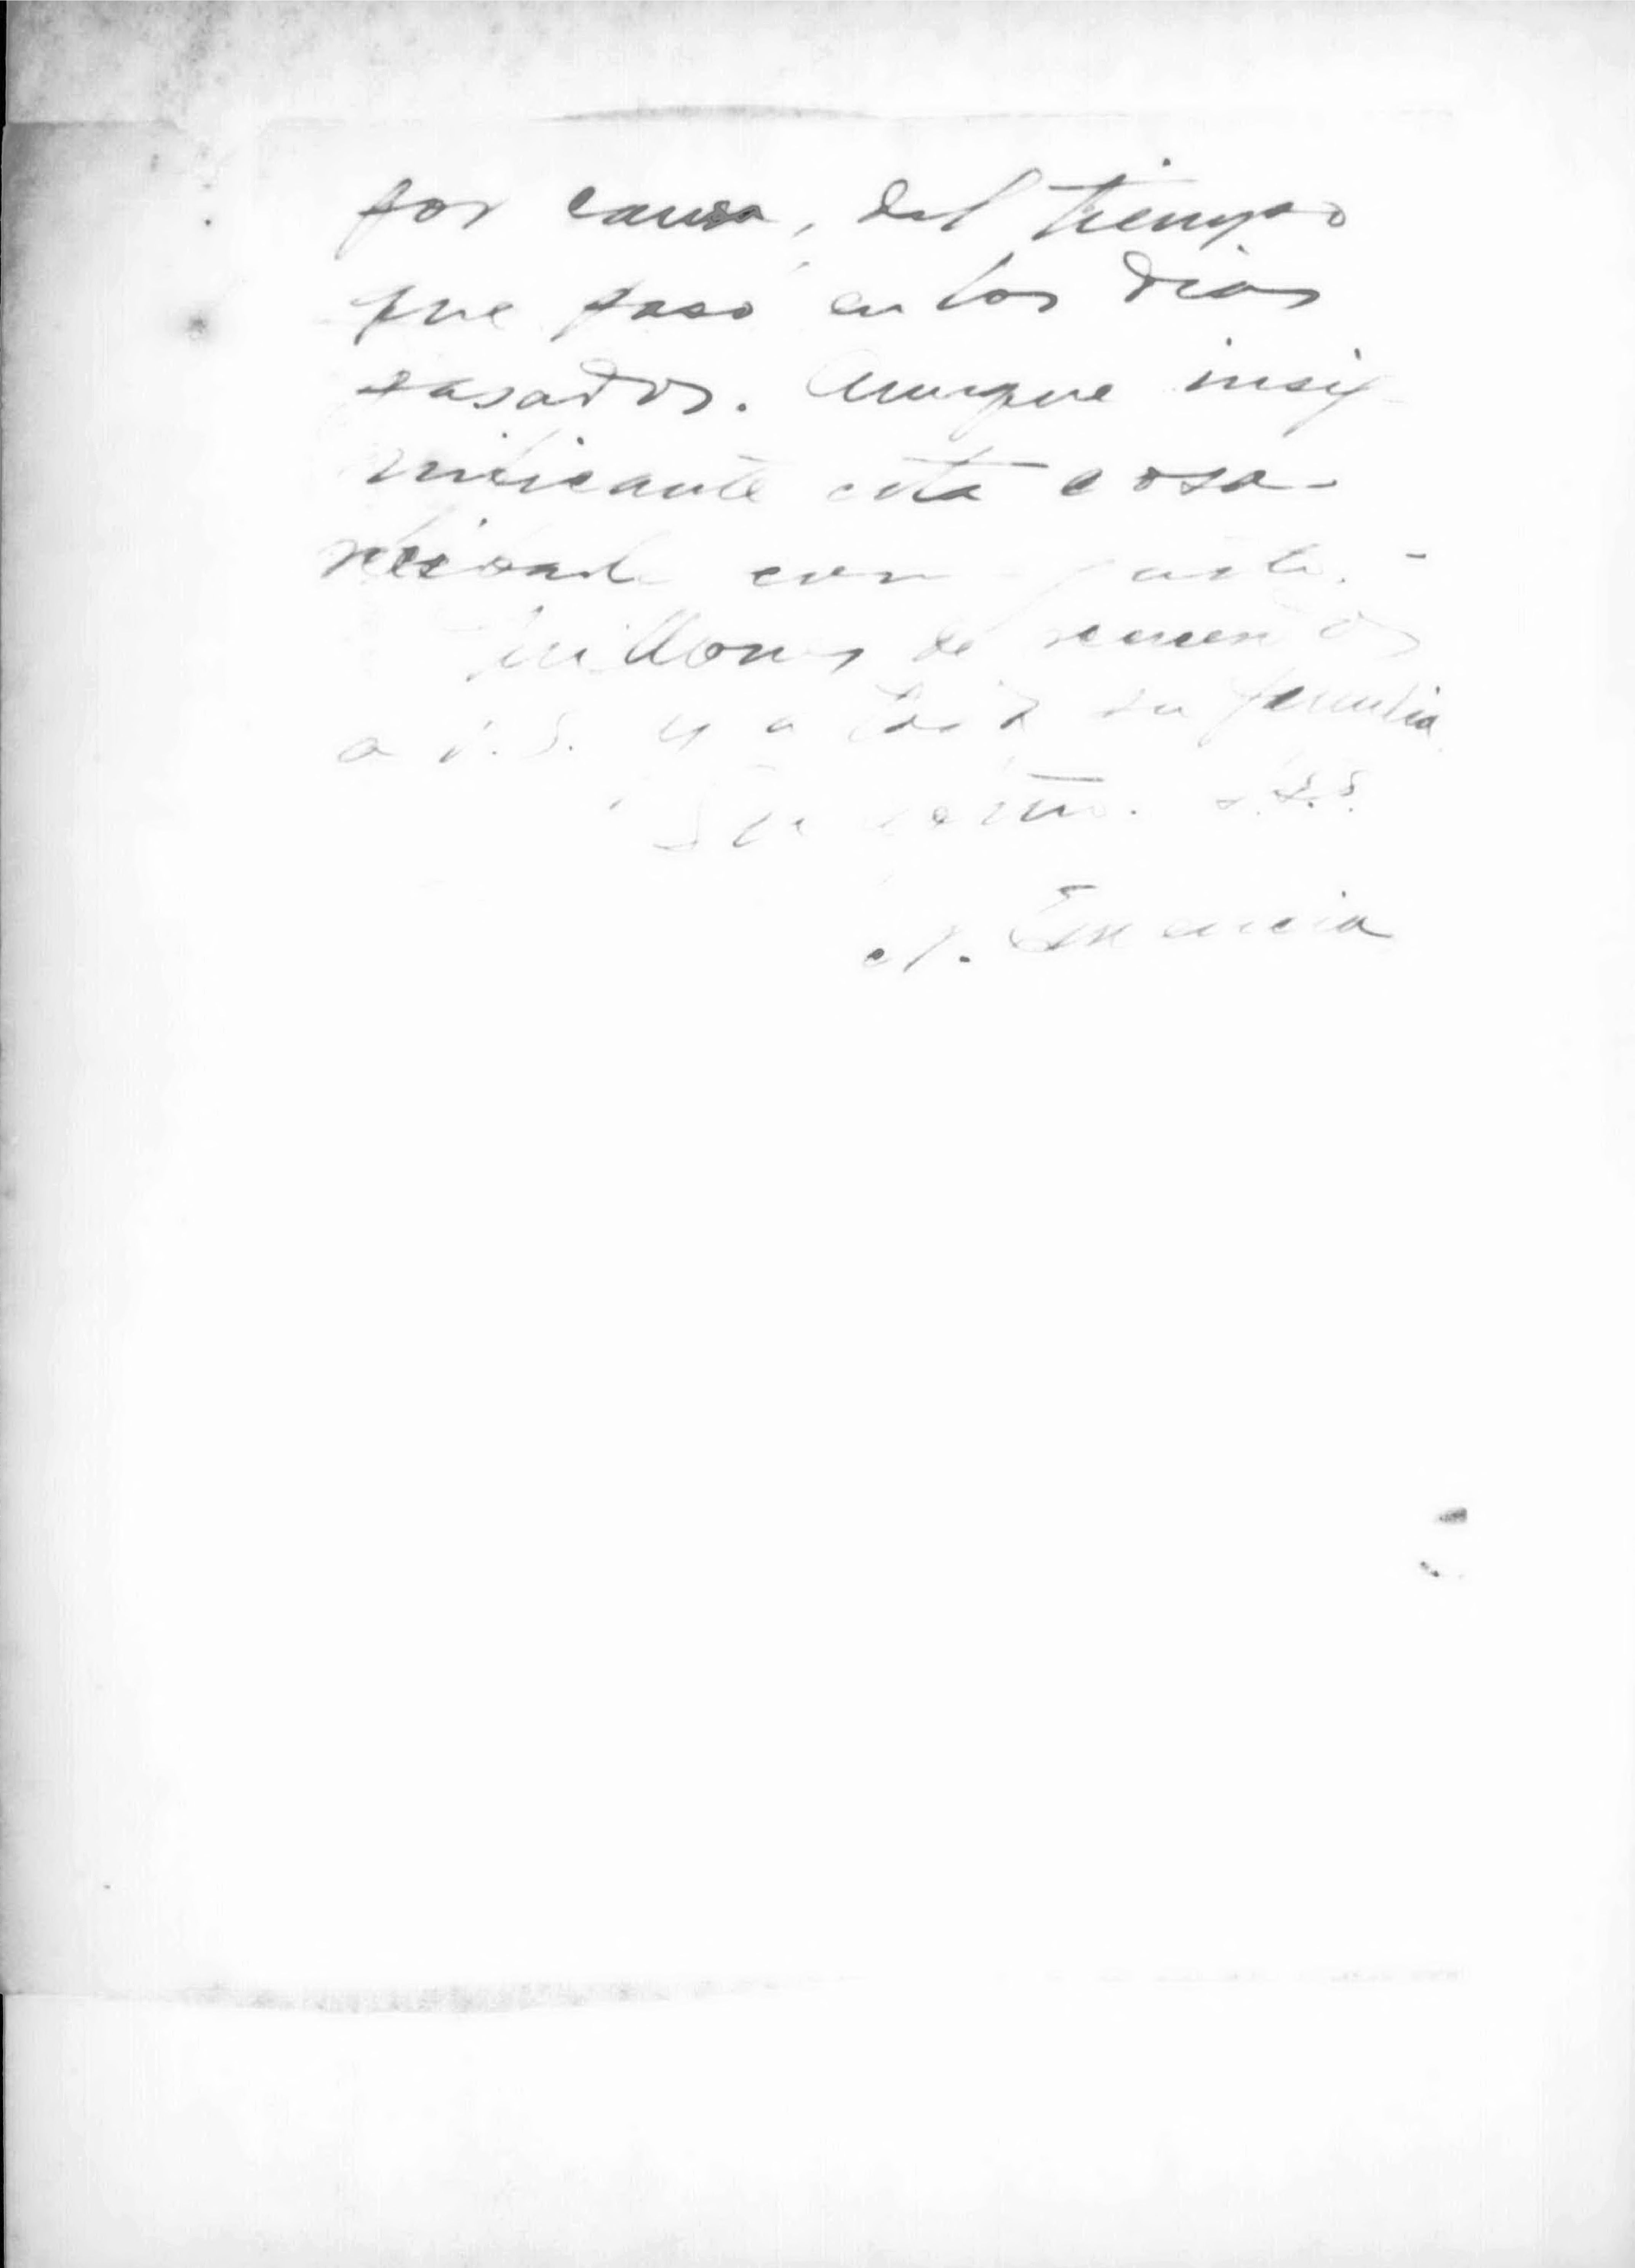 por causa, del tiempo
que pasó en los dias
pasados. Aunque insig-
nificante esta cosa
recibanla con gusto. -
Millones de recuerdos
a V. S. y a toda su familia
Su atmo. s.s.s.